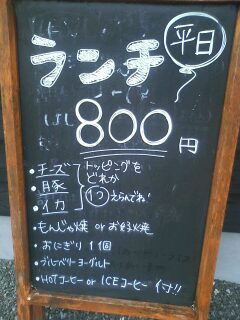 ランチ 平日
800円
・チーズ
・豚
・イカ
トッピングを
どれか
1つえらんでね!
・もんじゃ焼 or お好み焼
・おにぎり 1個
・ブルーベリーヨーグルト
・HOTコーヒー or ICEコーヒー 付!!